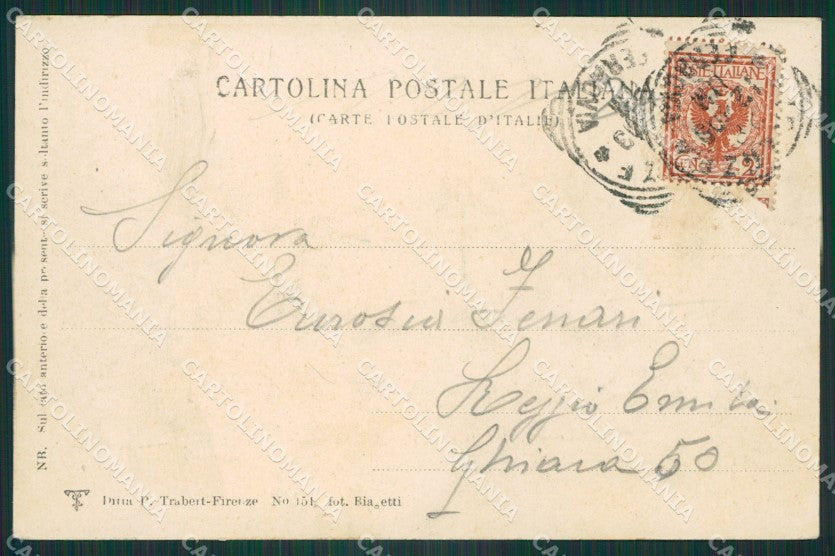 CARTOLINA POSTALE ITALIANA
(CARTE POSTALE D'ITALIE)
POSTE ITALIANE
CENT. 2
FERROVIA
Signora
Eurosia Ferrari
Reggio Emilia
Ghiara 50
NB. Sul lato anteriore della presente si scrive soltanto l'indirizzo
Ditta P. Trabert-Firenze No 151 fot. Biagetti
CARTOLINOMANIA